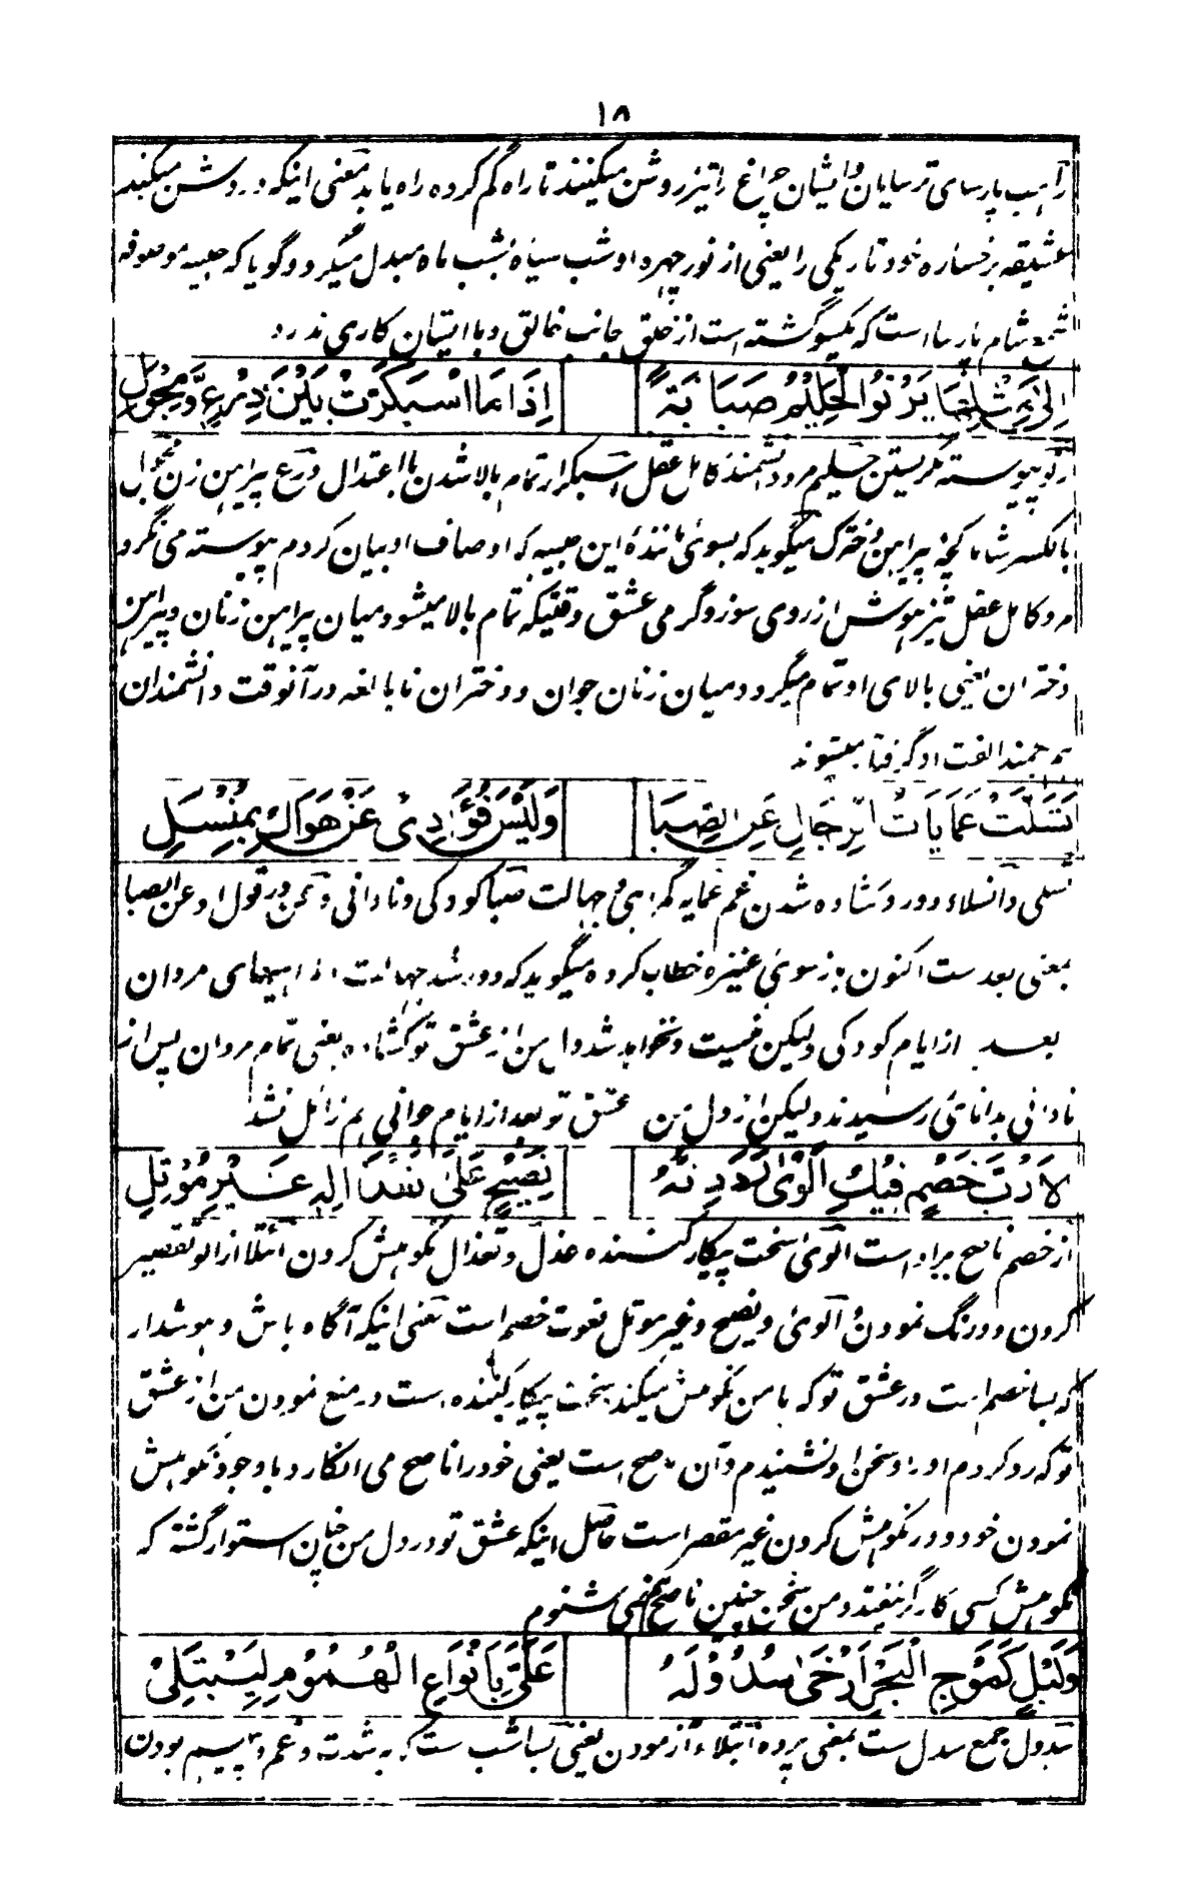 ۱۸
راهب پارسای ترسایان و ایشان چراغ را تیز روشن میکنند تا راه گم کرده راه یابد معنی اینکه روشن میکند
عشیقه برخساره خود تاریکی را یعنی از نور چهره او شب سیاه بشب ماه مبدل میگردد گویا که حبیبه موصوفه
شمع شام پارسا است که یکسو گشته است از خلق جانب خالق و با ایشان کاری ندارد
اِلٰی مِثْلِهَا یَرْنُو الْحَلِیْمُ صَبَابَةً
اِذَا مَا اسْبَکَرَّتْ بَیْنَ دِرْعٍ وَّمِجْوَلِ
رنو پیوسته نگریستن حلیم مرد دانشمند کامل عقل اسبکرار تمام بالا شدن با اعتدال درع پیراهن زن مجول
بالکسر شاماکچه پیراهن دخترک میگوید که بسوئ مانندهٔ این حبیبه که اوصاف او بیان کردم پیوسته می نگرد
مرد کامل عقل تیز هوش از روی سوز و گرمی عشق وقتیکه تمام بالا میشود میان پیراهن زنان و پیراهن
دختران یعنی بالای او تمام میگردد میان زنان جوان و دختران نابالغه در آنوقت دانشمندان
بکمند الفت او گرفتار میشوند
تَسَلَّتْ عَمَایَاتُ الرِّجَالِ عَنِ الصِّبَا
وَلَیْسَ فُؤَادِیْ عَنْ هَوَاكِ بِمُنْسَلِ
تسلی و انسلاء دور و شاده شدن غم عمایه گمراهی و جهالت صبا کودکی و نادانی و عن در قول او عن الصبا
بمعنی بعد ست اکنون باز سوئ عنیزه خطاب کرده میگوید که دور شد جهالت و گمراهیهای مردان
بعد از ایام کودکی ولیکن نیست و نخواهد شد دل من از عشق تو کشاده یعنی تمام مردان پس از
نادانی بدانائ رسیدند ولیکن از دل من عشق تو بعد از ایام جوانی هم زائل نشد
اَلَا رُبَّ خَصْمٍ فِیْكِ اَلْوٰی رَدَدْتُّهٗ
نَصِیْحٍ عَلٰی تَعْذَالِهٖ غَیْرِ مُؤْتَلِ
از خصم ناصح مراد است الوی سخت پیکار کننده عذل و تعذال نکوهش کردن ائتلا از الو تقصیر
کردن و درنگ نمودن و الوی و نصیح و غیر موتل نعوت خصم است یعنی اینکه آگاه باش و هوشدار
که بسا خصم است در عشق تو که با من نکوهش میکند سخت پیکار کننده است در منع نمودن من از عشق
تو که رد کردم او را و سخن او نشنیدم و آن ناصح است یعنی خود را ناصح می انگارد با وجود نکوهش
نمودن خود و در نکوهش کردن غیر مقصر است حاصل اینکه عشق تو در دل من چنان استوار گشته که
نکوهش کسی کارگر نیفتد و من سخن چنین ناصح نمی شنوم
وَلَیْلٍ کَمَوْجِ الْبَحْرِ اَرْخٰی سُدُوْلَهٗ
عَلَیَّ بِاَنْوَاعِ الْهُمُوْمِ لِیَبْتَلِیْ
سدول جمع سدل ست بمعنی پرده ابتلاء آزمودن یعنی بسا شب ست که به شدت و غم و بیم بودن